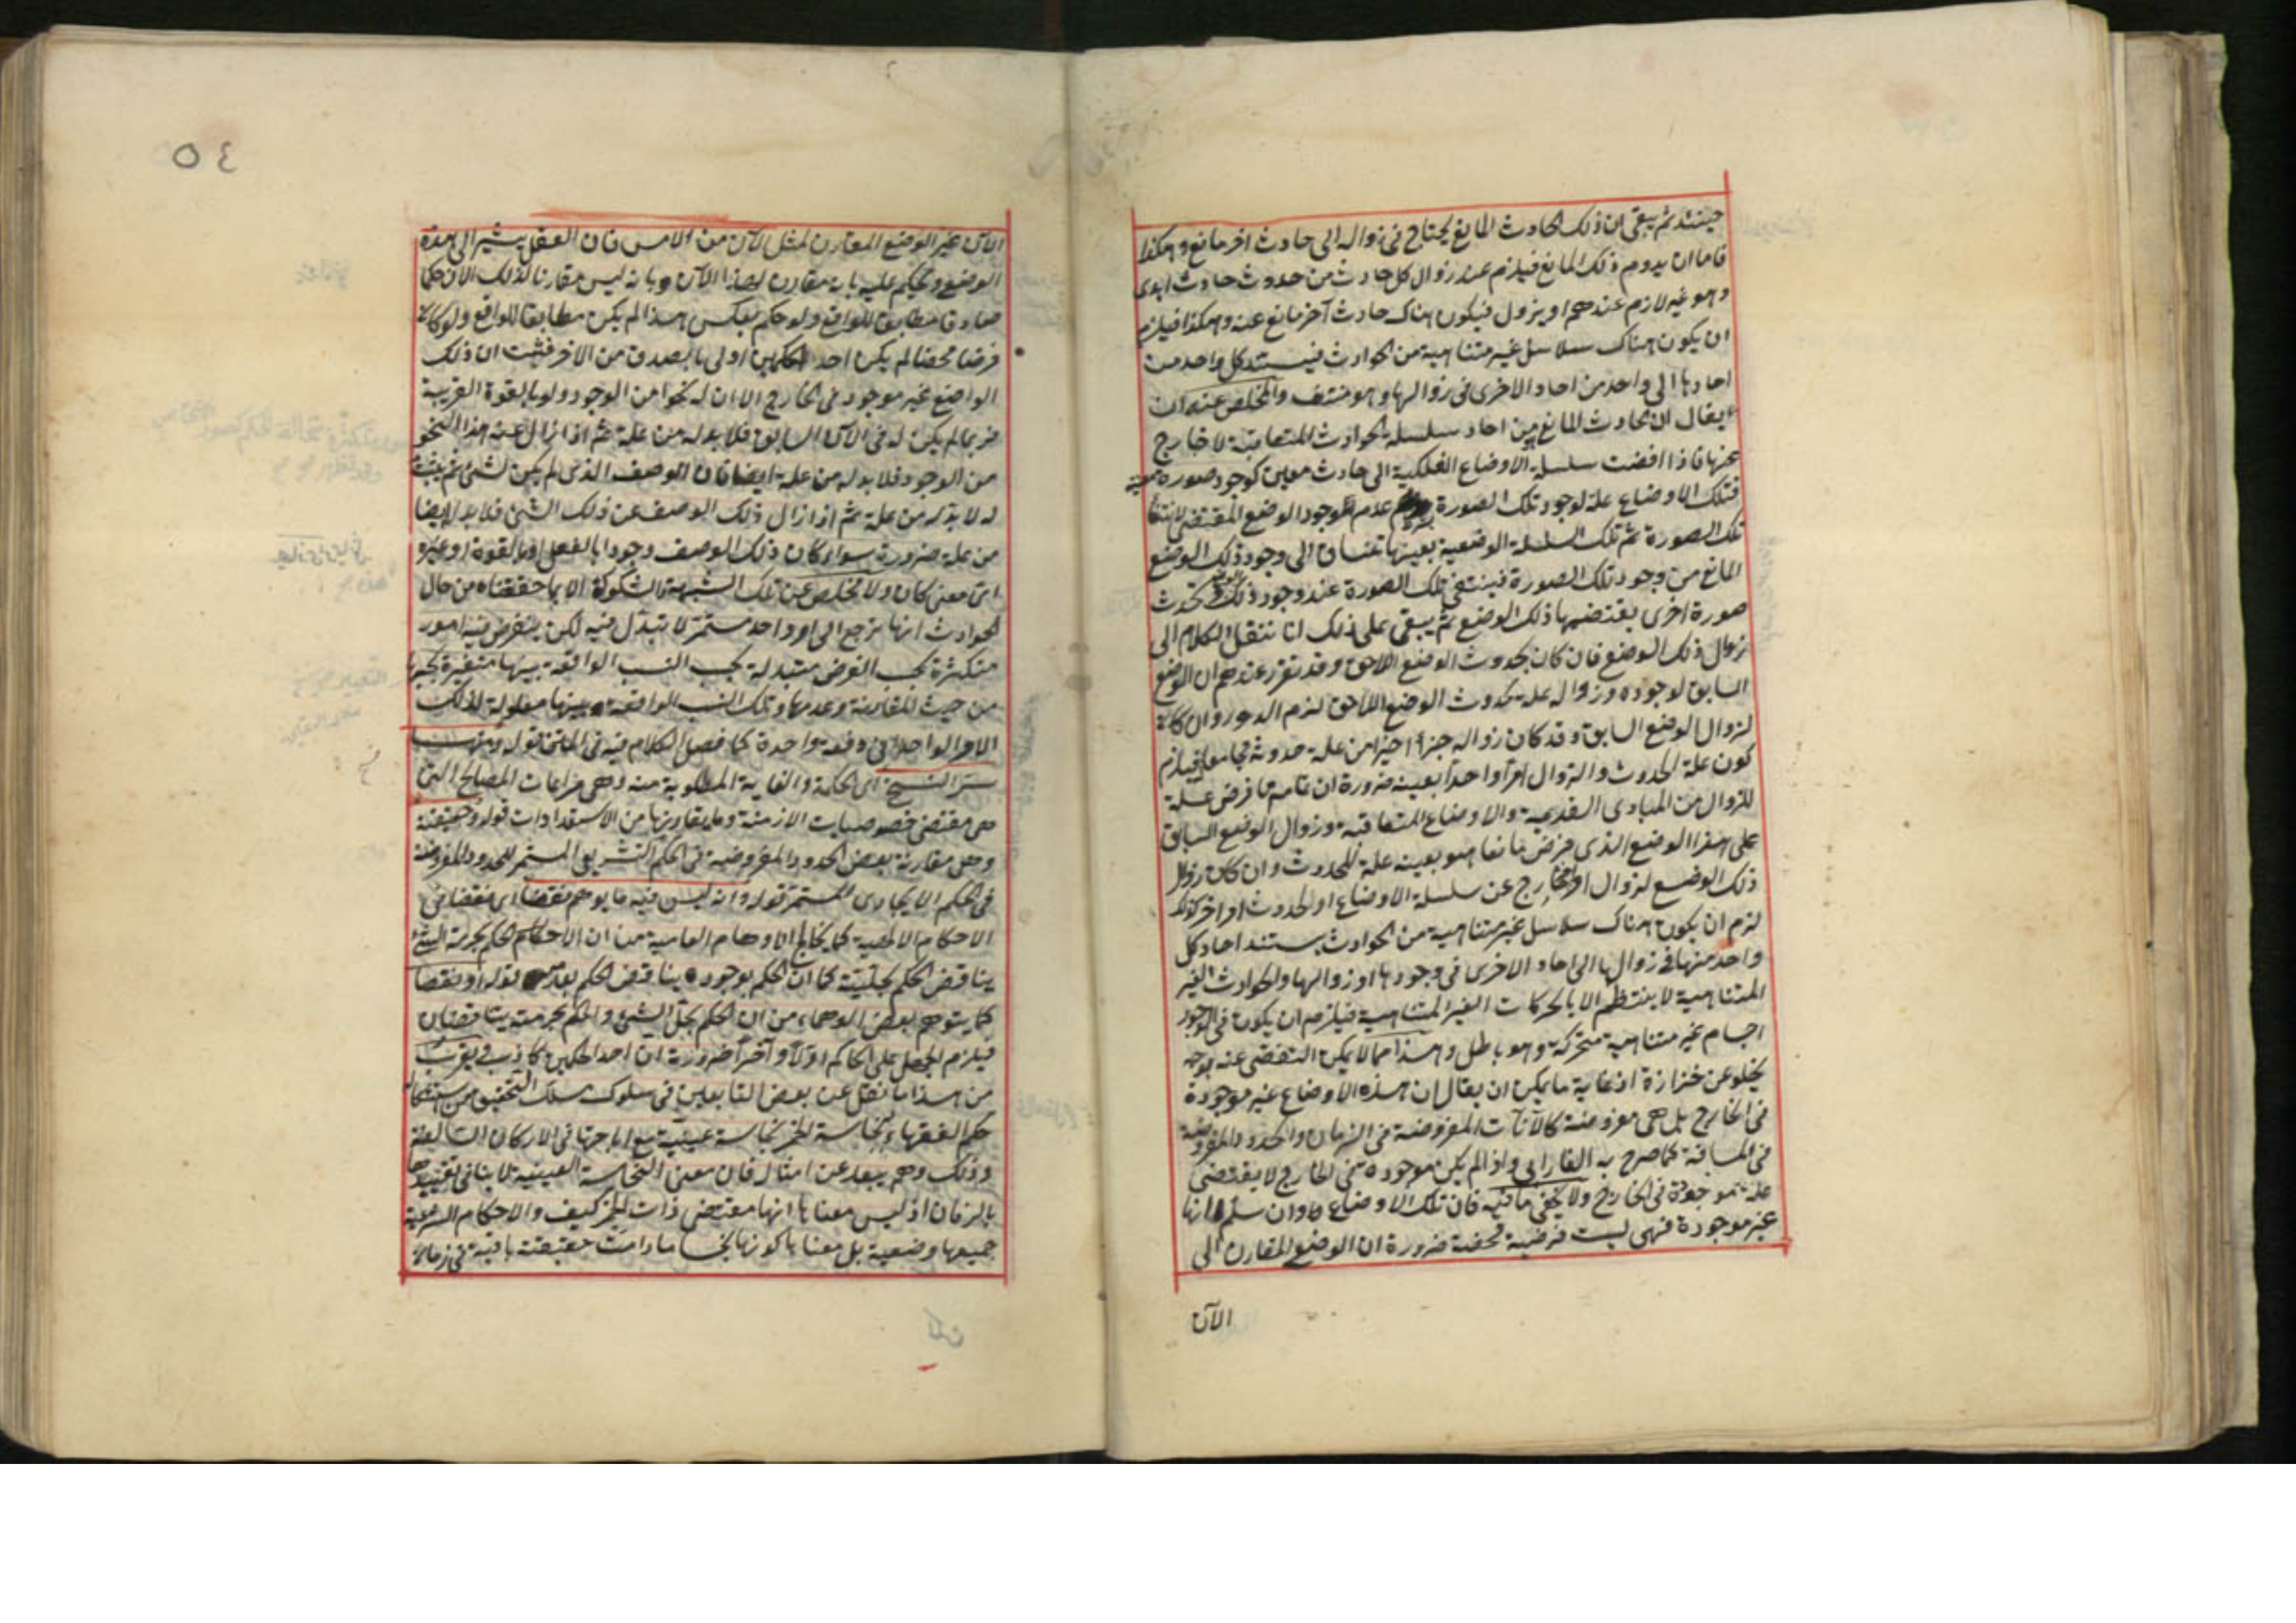 حينئذ ثم يبقى ان ذلك الحادث المانع يحتاج فى زواله الى حادث اخر مانع وهكذا
فاما ان يدوم ذلك المانع فيلزم عند زوال كل حادث من حدوث حادث ابدى
وهو غير لازم عندهم او يزول فيكون هناك حادث آخر مانع عنه وهكذا فيلزم
ان يكون هناك سلاسل غير متناهية من الحوادث فيستند كل واحد من
احادها الى واحد من احاد الاخرى فى زوالها وهو منتف والمخلص عنه ان
يقال ان الحادث المانع من احاد سلسلة الحوادث المتعاقبة لا خارج
عنها فاذا افضت سلسلة الاوضاع الفلكية الى حادث معين كوجود صورة معينة
فتلك الاوضاع علة لوجود تلك الصورة عدم لوجود الوضع المقتضى لانتفاء
تلك الصورة ثم تلك السلسلة الوضعية بعينها تنساق الى وجود ذلك الوضع
المانع من وجود تلك الصورة فينتفى تلك الصورة عند وجود ذلك الوضع وتحدث
صورة اخرى يقتضيها ذلك الوضع ثم يبقى على ذلك انا ننقل الكلام الى
زوال ذلك الوضع فان كان بحدوث الوضع اللاحق وقد تقرر عندهم ان الوضع
السابق لوجوده وزواله علة لحدوث الوضع اللاحق لزم الدور وان كان
لزوال الوضع السابق وقد كان زواله جزءا اخيرا من علة حدوثه فيلزم
كون علة الحدوث والزوال امرا واحدا بعينه ضرورة ان تمامه ما فرض علة
للزوال من المبادى القديمة والاوضاع المتعاقبة وزوال الوضع السابق
على هذا الوضع الذى فرض مانعا هو بعينه علة للحدوث وان كان زوال
ذلك الوضع لزوال امر خارج عن سلسلة الاوضاع او لحدوث امر اخر كذلك
لزم ان يكون هناك سلاسل غير متناهية من الحوادث يستند احاد كل
واحد منها فى زوالها الى احاد الاخرى فى وجودها او زوالها والحوادث الغير
المتناهية لا ينتظم الا بالحركات الغير المتناهية فيلزم ان يكون فى الوجود
اجسام غير متناهية متحركة وهو باطل وهذا مما لا يمكن التفصى عنه بوجه
يخلو عن حزازة اذ غاية ما يمكن ان يقال ان هذه الاوضاع غير موجودة
فى الخارج بل هى مفروضة كالآنات المفروضة فى الزمان والحدود المفروضة
فى المسافة كما صرح به الفارابى واذا لم يكن موجودة فى الخارج لا يقتضى
علة موجودة فى الخارج ولا يخفى ما فيه فان تلك الاوضاع وان سلم انها
غير موجودة فهى ليست فرضية محضة ضرورة ان الوضع المقارن الى
الآن
٥٤
الآن غير الوضع المقارن لمثل الآن من الامس فان العقل يشير الى هذه
الوضع ويحكم عليه بانه مقارن لهذا الآن وبانه ليس مقارنا لذلك الآن حكما
صادقا مطابقا للواقع ولو حكم بعكس هذا لم يكن مطابقا للواقع ولو كان
فرضا محضا لم يكن احد الحكمين اولى بالصدق من الاخر فثبت ان ذلك
الواضع غير موجود فى الخارج الا ان له نحوا من الوجود ولو بالقوة القريبة
فربما لم يكن له فى الآن السابق فلا بد له من علة ثم اذا زال عنه هذا النحو
من الوجود فلا بد له من علة ايضا فان الوصف الذى لم يكن لشئ ثم يثبت
له لا بد له من علة ثم اذا زال ذلك الوصف عن ذلك الشئ فلا بد له ايضا
من علة ضرورة سواء كان ذلك الوصف وجودا بالفعل او بالقوة او غيره
اى معنى كان ولا مخلص عن تلك الشبهة الا بما حققناه من حال
الحوادث انها ترجع الى امر واحد مستمر لا تبدل فيه لكن ينفرض فيه امور
متكثرة بحسب الفرض متبدلة بحسب النسب الواقعة بينها متغيرة بحسبها
من حيث المقارنة وعدمها وتلك النسب الواقعة بينها معلولة لذلك
الامر الواحد فى دفعة واحدة كما فصل الكلام فيه فى المتن قوله ومنه
سر النسخ اى الحكمة والغاية المطلوبة منه وهى مراعات المصالح التى
هى مقتضى خصوصيات الازمنة وما يقارنها من الاستعدادات قوله وحقيقته
وهى مقارنة بعض الحدود المفروضة فى الحكم التشريعى المستمر للحدود المفروضة
فى الحكم الايجادى المستمر قوله وانه ليس فيه ما يوهم نقضا اى نقضا فى
الاحكام الالهية كما يخالج الاوهام العامية من ان الاحكام الحكم بحرمة الشئ
يناقض الحكم بحليته كما ان الحكم بوجوده يناقض الحكم بعدمه قوله او نقصا
كما يتوهم بعض الوهماء من ان الحكم بحل الشئ والحكم بحرمته يتناقضان
فيلزم الجهل على الحاكم اولا وآخرا ضرورة ان احد الحكمين كاذب ويقرب
من هذا ما نقل عن بعض التابعين فى سلوك مسلك التحقيق من استشكال
حكم الفقهاء بنجاسة الخمر نجاسة عينية مع اباحتها فى الاركان السالفة
وذلك وهم يبعد عن امثاله فان معنى النجاسة العينية لا ينافى تقييدها
بالزمان اذ ليس معناها انها مقتضى ذات الخمر كيف والاحكام الشرعية
جميعها وضعية بل معناها كونها نجسا ما دامت حقيقته باقية فى زمان